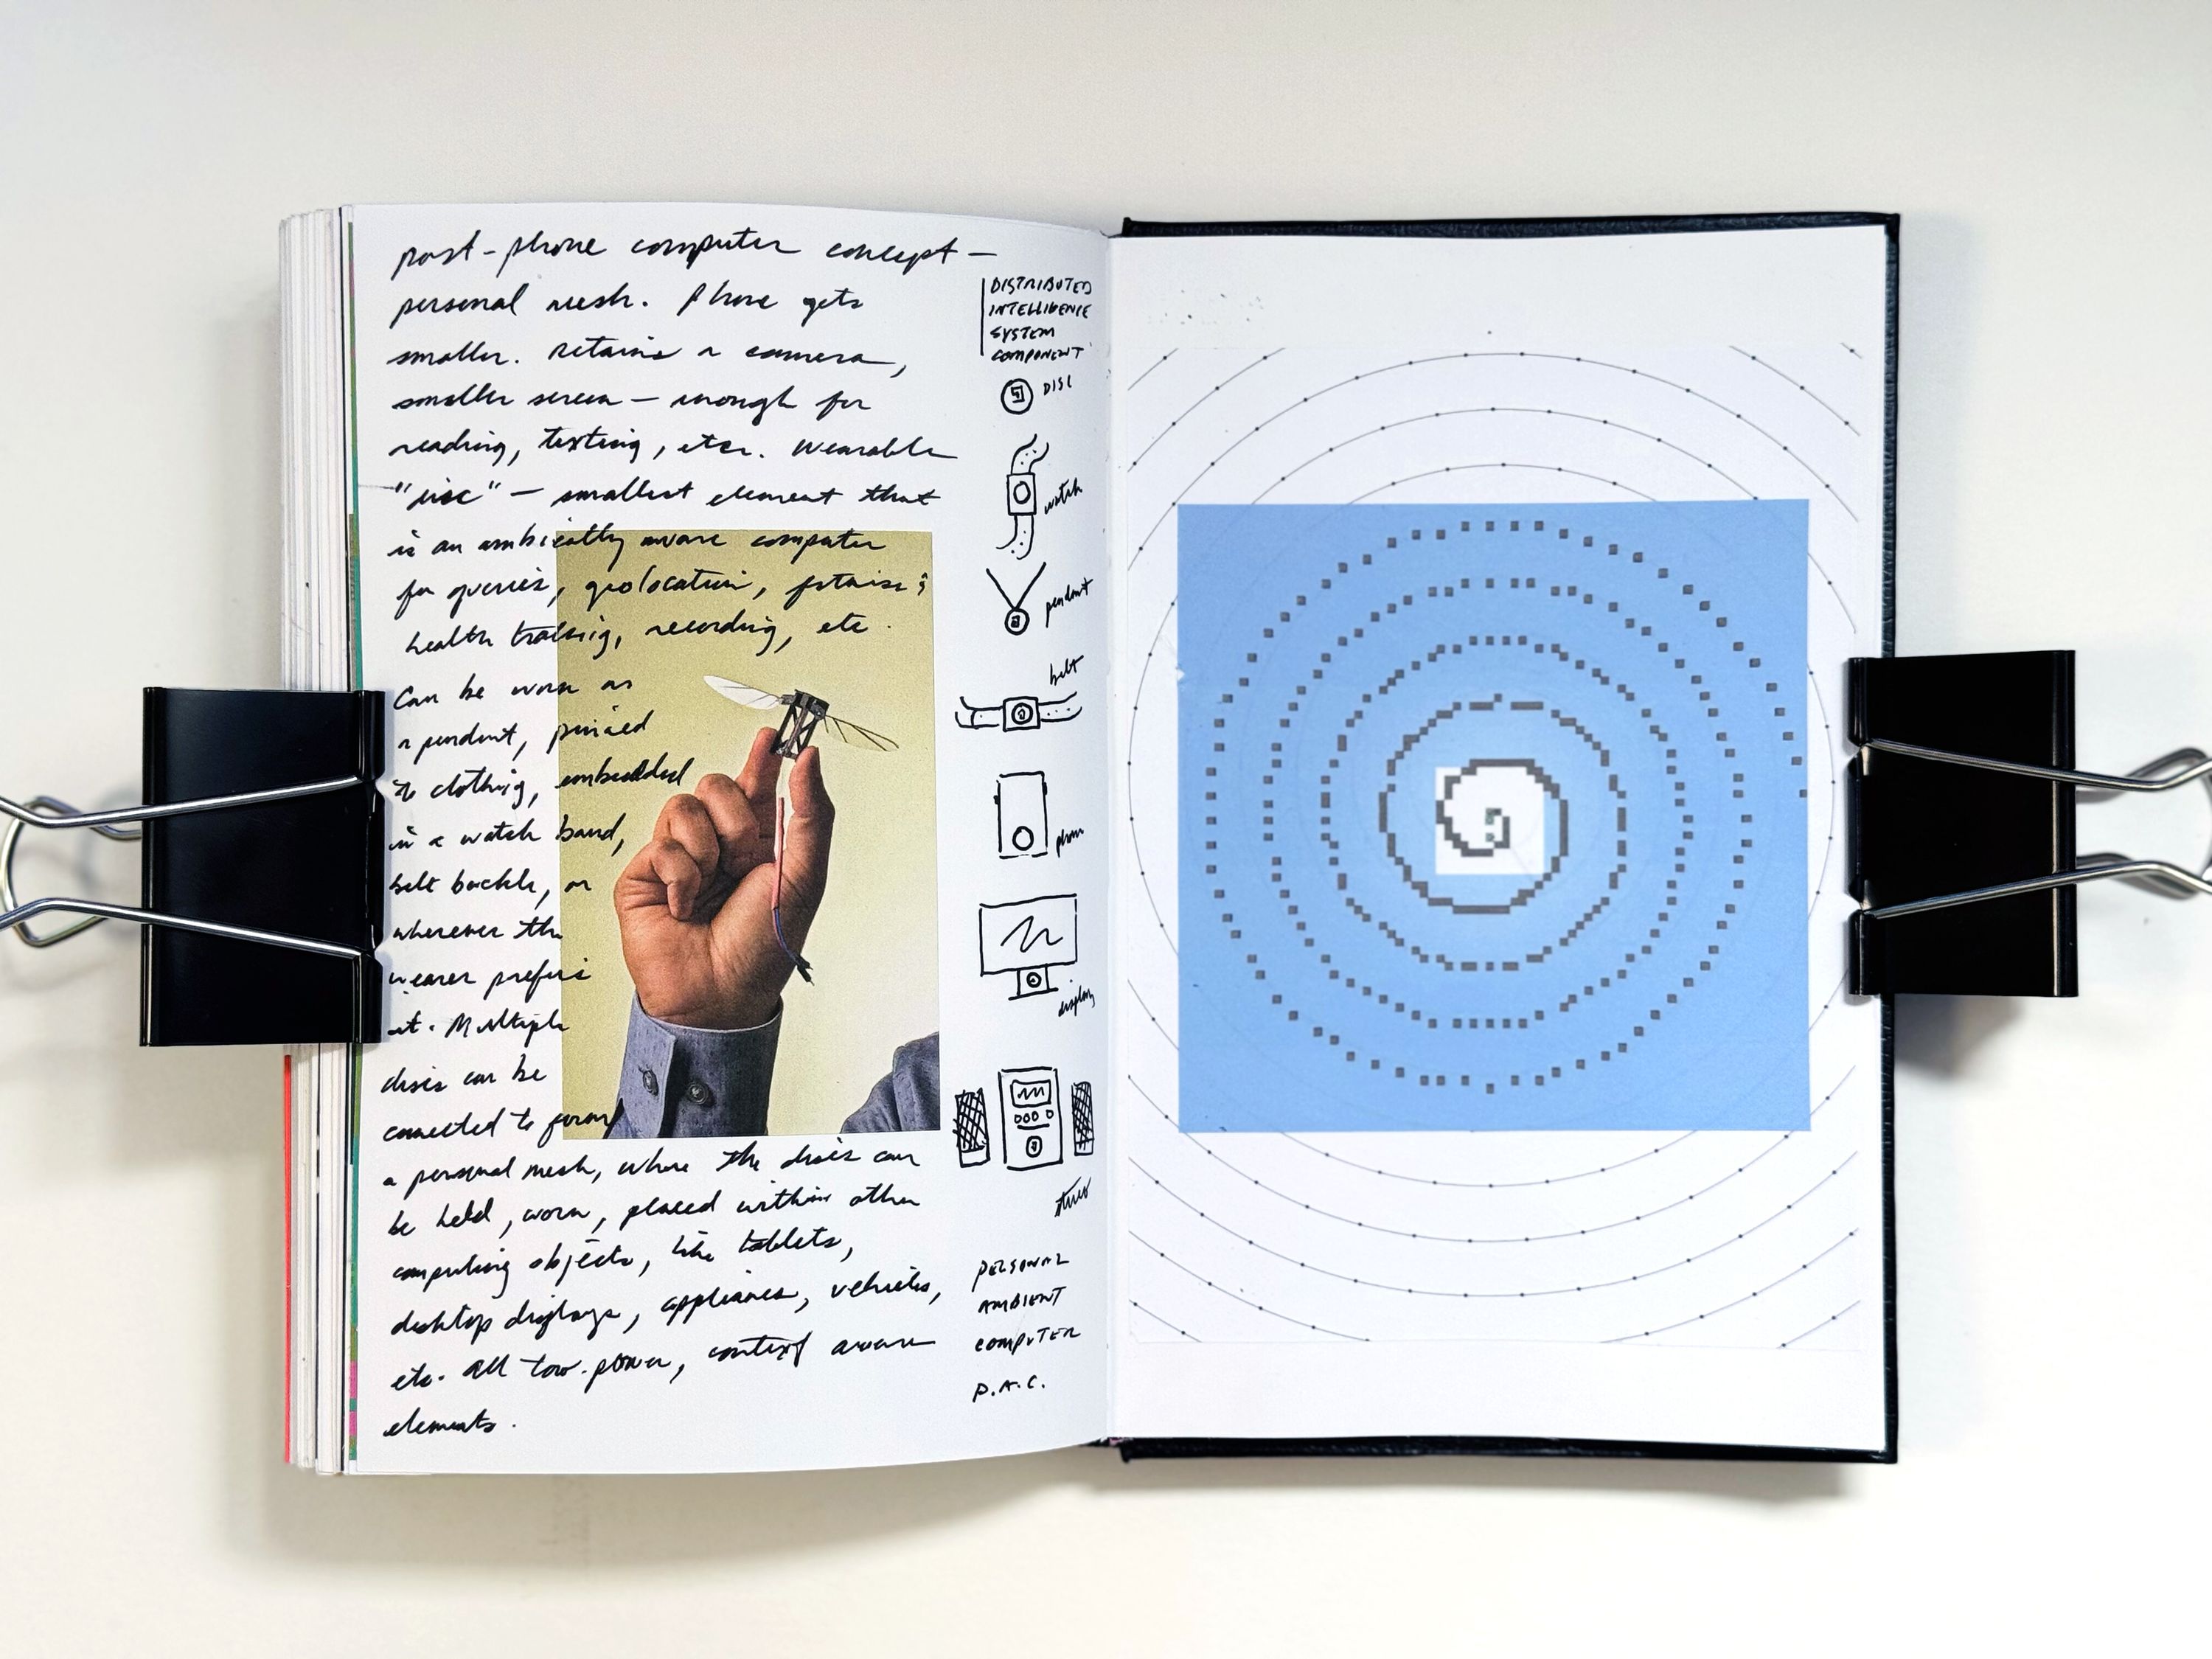 post-phone computer concept —
personal mesh. Phone gets
smaller. Retains a camera,
smaller screen — enough for
reading, texting, etc. Wearable
"disc" — smallest element that
is an ambiently aware computer
for queries, geolocation,
health tracking, recording, etc.
Can be worn as
a pendant, pinned
to clothing, embedded
in a watch band,
belt buckle, or
wherever the
wearer prefers
it. Multiple
discs can be
connected to form
a personal mesh, where the discs can
be held, worn, placed within other
computing objects, like tablets,
desktop displays, appliances, vehicles,
etc. All low-power, context aware
elements.
DISTRIBUTED
INTELLIGENCE
SYSTEM
COMPONENT
DISC
watch
pendant
belt
phone
display
PERSONAL
AMBIENT
COMPUTER
P.A.C.